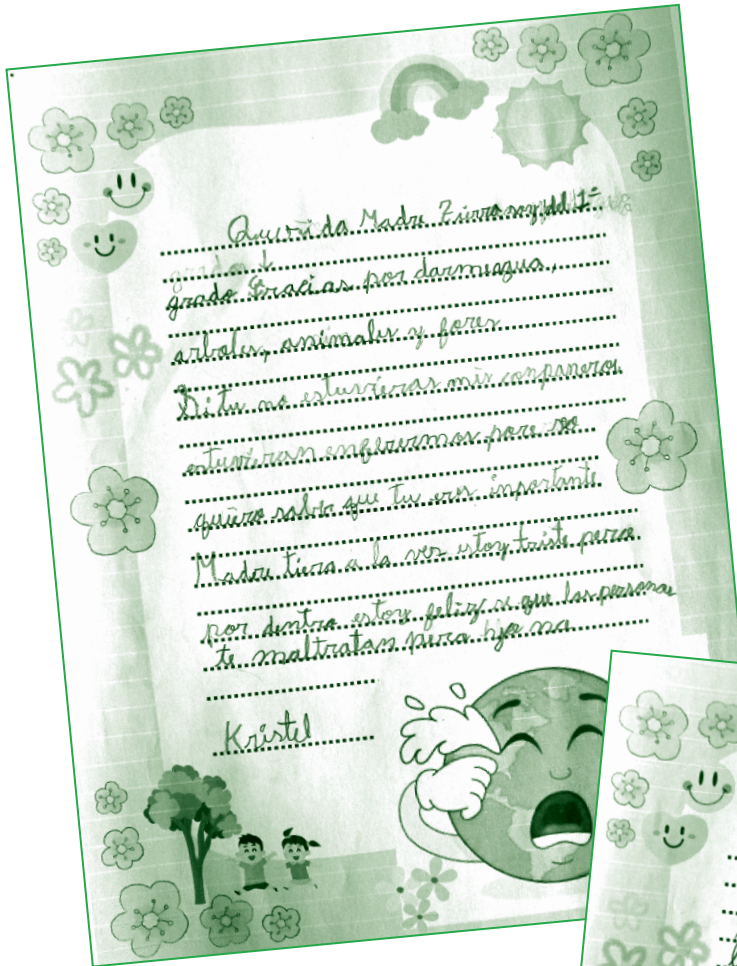 Querida Madre Zierra soy del 1°
grado Gracias por darme agua,
arboles, animales y fores
Si tu no estuvieras mis conpañeros
estuvieran enfermos pore so
quiero saber que tu eres inportante
Madre tiera a la ves estoy triste pero
por dentro estoy feliz se que las personas
te maltratan pero yo no
Kristel